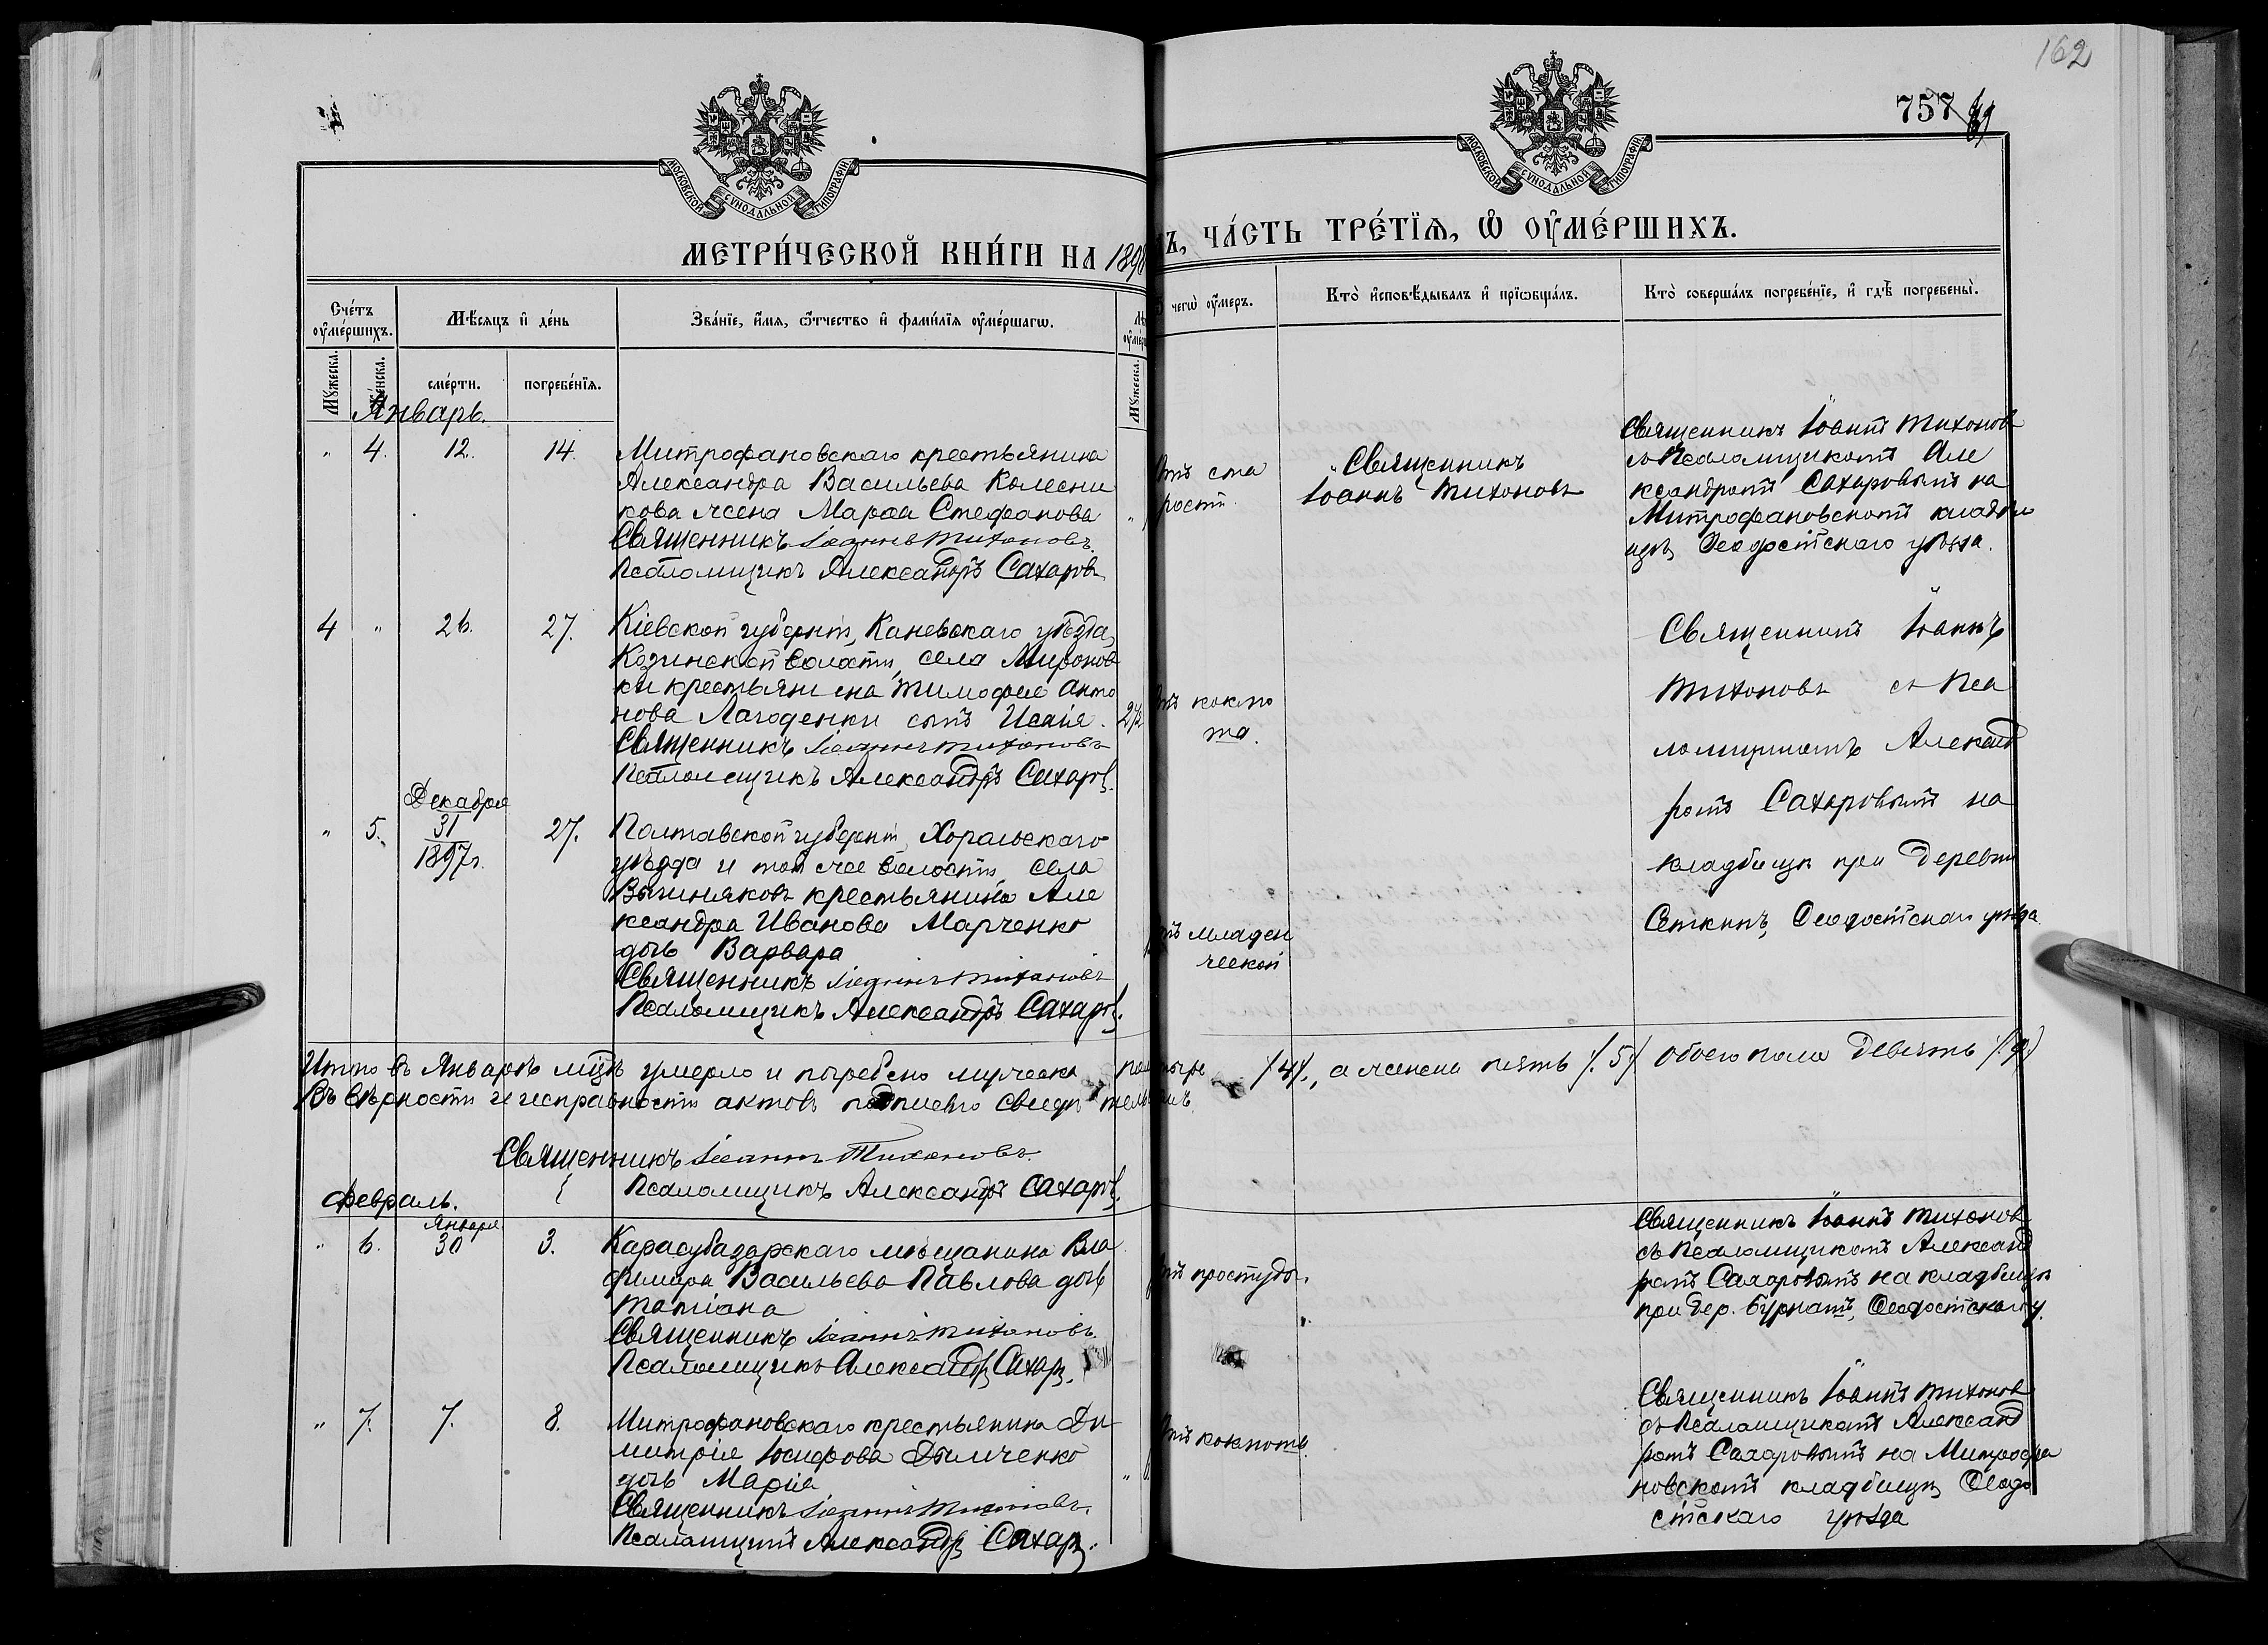 162
757
МОСКОВСКОЙ СѴНОДАЛЬНОЙ ТИПОГРАФІИ
МОСКОВСКОЙ СѴНОДАЛЬНОЙ ТИПОГРАФІИ
МЕТРИ́ЧЕСКОЙ КНИ́ГИ НА 1898
Ъ, ЧА́СТЬ ТРЕ́ТІѦ, Ѽ ОУ҆МЕ́РШИХЪ.
Сче́тъ оу҆ме́ршихъ.
Мѣ́сяцъ и҆ де́нь
Зва́нїе, и҆́мя, ѻ҆́тчество и҆ фами́лїя оу҆ме́ршагѡ.
чегѡ̀ оу҆́меръ.
Кто̀ и҆сповѣ́дывалъ и҆ прїѡбща́лъ.
Кто̀ соверша́лъ погребе́нїе, и҆ гдѣ̀ погребены̀.
Мꙋ́жеска.
Же́нска.
сме́рти.
погребе́нїя.
Мꙋ́жеска.
Январь.
" 4. 12. 14.
Митрофановскаго крестьянина
Александра Васильева Колесни
кова жена Марѳа Стефанова
Священникъ Іоаннъ Тихоновъ.
Псаломщикъ Александръ Сахаровъ
отъ ста
рости.
Священникъ
Іоаннъ Тихоновъ
Священникъ Іоаннъ Тихоновъ
съ Псаломщикомъ Але
ксандромъ Сахаровымъ на
Митрофановскомъ кладби
щѣ, Ѳеодосійскаго уѣзда.
4 " 26. 27.
Кіевской губерніи, Каневскаго уѣзда,
Козинской волости, села Миронов
ки крестьянина Тимофея Анто
нова Лагоденки сынъ Исаія.
Священникъ Іоаннъ Тихоновъ
Псаломщикъ Александръ Сахаровъ.
отъ коклю
ша.
Священникъ Іоаннъ
Тихоновъ съ Пса
ломщикомъ Александ
ромъ Сахаровымъ на
кладбищѣ при деревни
Сеткинъ, Ѳеодосійскаго уѣзда.
Декабря
" 5. 31 27.
1897 г.
Полтавской губерніи, Хорольскаго
уѣзда и той же волости, села
крестьянина Але
ксандра Иванова Марченко
дочь Варвара
Священникъ Іоаннъ Тихоновъ
Псаломщикъ Александръ Сахаровъ.
отъ младен
ческой
Итого въ Январѣ мѣсяцѣ умерло и погребено мужеска четыре /4/, а женска пять /5/ обоего пола девять /9/
Въ вѣрности и исправности актовъ подписью свидѣтельствуемъ
Священникъ Іоаннъ Тихоновъ.
Псаломщикъ Александръ Сахаровъ.
Февраль.
Января
" 6. 30 3.
Карасубазарскаго мѣщанина Вла
димира Васильева Павлова дочь
Татіана
Священникъ Іоаннъ Тихоновъ.
Псаломщикъ Александръ Сахаровъ.
отъ простуды.
Священникъ Іоаннъ Тихоновъ
съ Псаломщикомъ Александ
ромъ Сахаровымъ на кладбищѣ
при дер. Бурнашъ, Ѳеодосійскаго у.
" 7. 7. 8.
Митрофановскаго крестьянина Ди
митрія Іосифова Дымченко
дочь Марія
Священникъ Іоаннъ Тихоновъ.
Псаломщикъ Александръ Сахаровъ.
Священникъ Іоаннъ Тихоновъ
съ Псаломщикомъ Александ
ромъ Сахаровымъ на Митрофа
новскомъ кладбищѣ Ѳеодо
сійскаго уѣзда